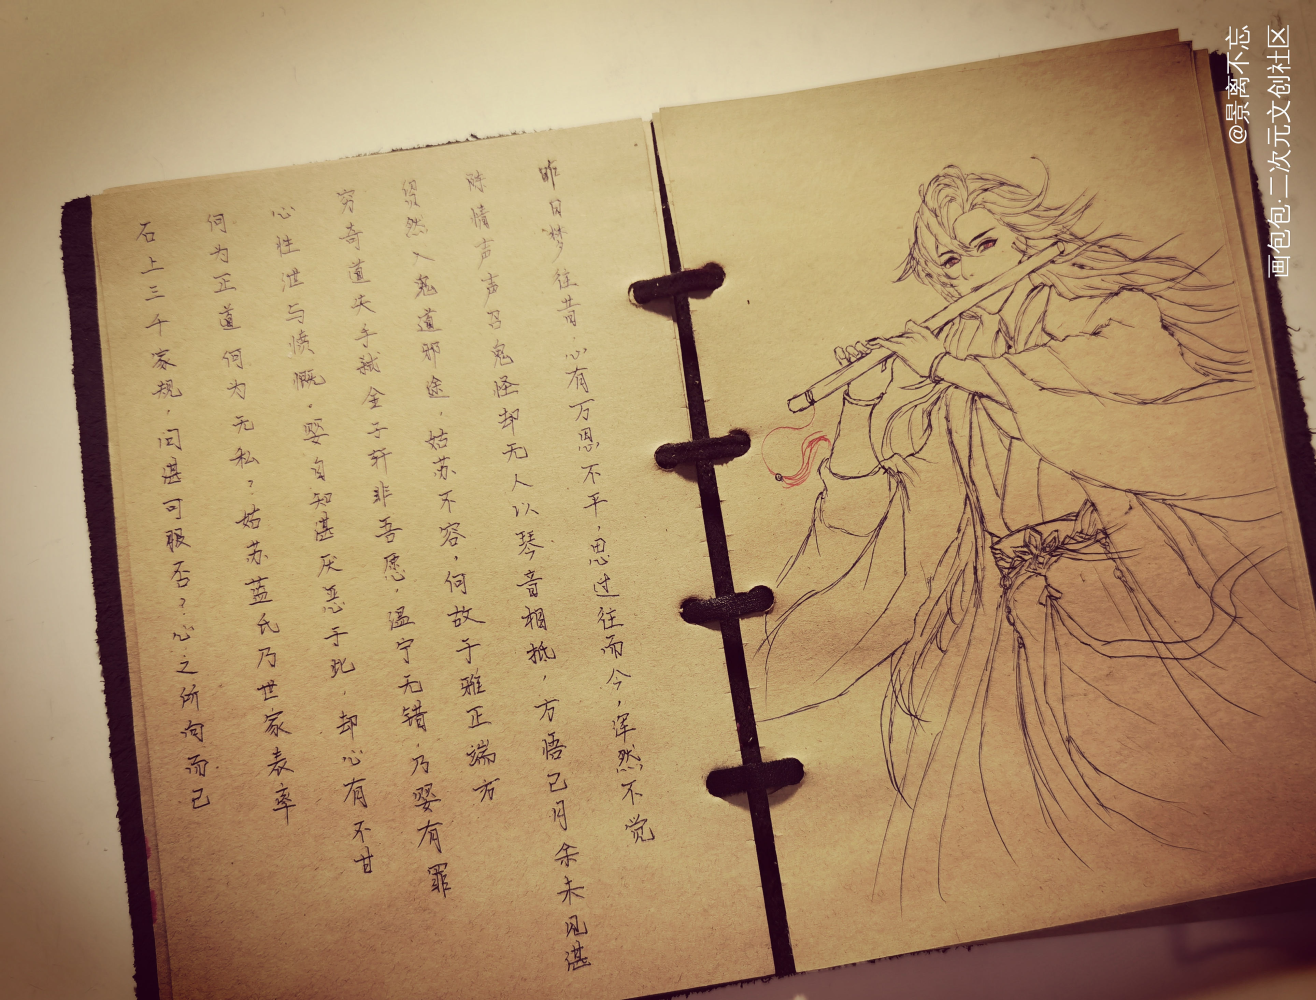 昨日梦往昔,心有万思不平,思过往而今,浑然不觉
陈情声声召鬼怪却无人以琴音相抵,方悟已月余未见湛
贸然入鬼道邪途,姑苏不容,何故于雅正端方
穷奇道失手弑金子轩非吾愿,温宁无错,乃婴有罪
心性泄与愤慨,婴自知湛厌恶于此,却心有不甘
何为正道 何为无私?姑苏蓝氏乃世家表率
石上三千家规,问湛可服否?心之所向而已
@景离不忘
画包包·二次元文创社区